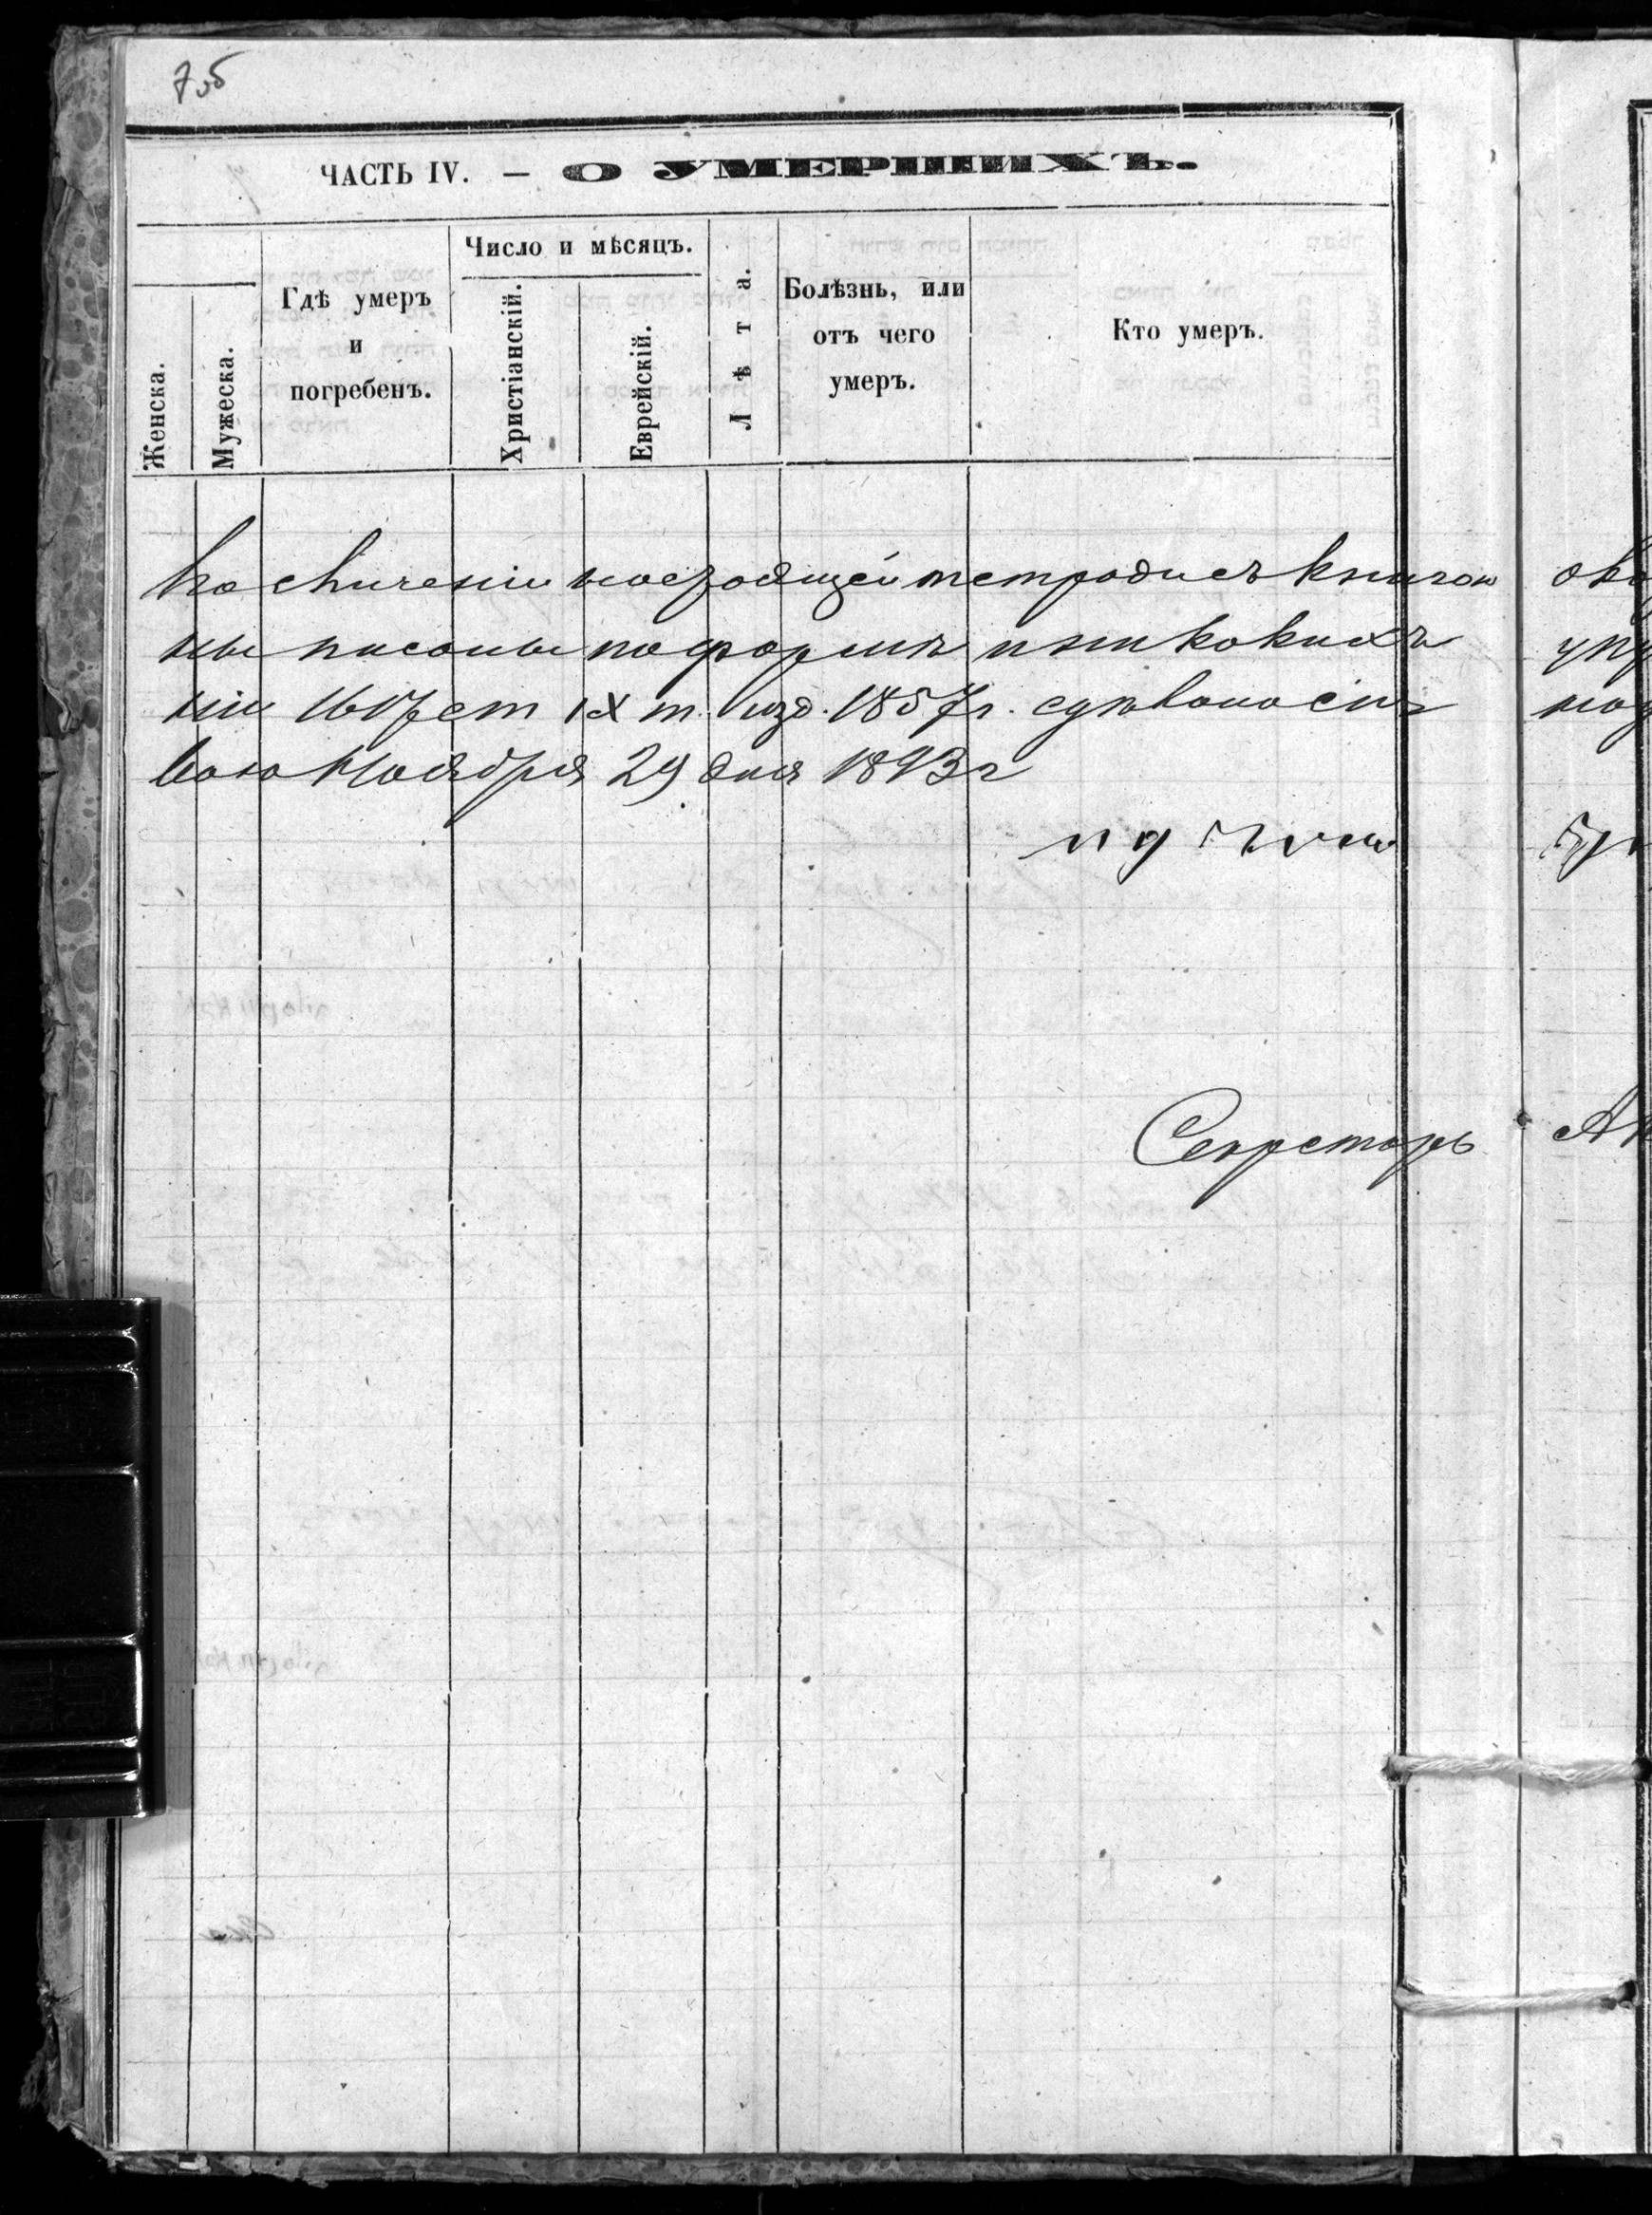 7об
ЧАСТЬ IV. — О УМЕРШИХЪ.
Женска.
Мужеска.
Гдѣ умеръ
и
погребенъ.
Число и мѣсяцъ.
Христіанскій.
Еврейскій.
Лѣта.
Болѣзнь, или
отъ чего
умеръ.
Кто умеръ.
По сличеніи настоящей тетради съ книгою
ны писаны по формѣ и никакихъ
нiи 1607 ст IX т. изд. 1857 г.
Ноября 29 дня 1893 г
Секретарь